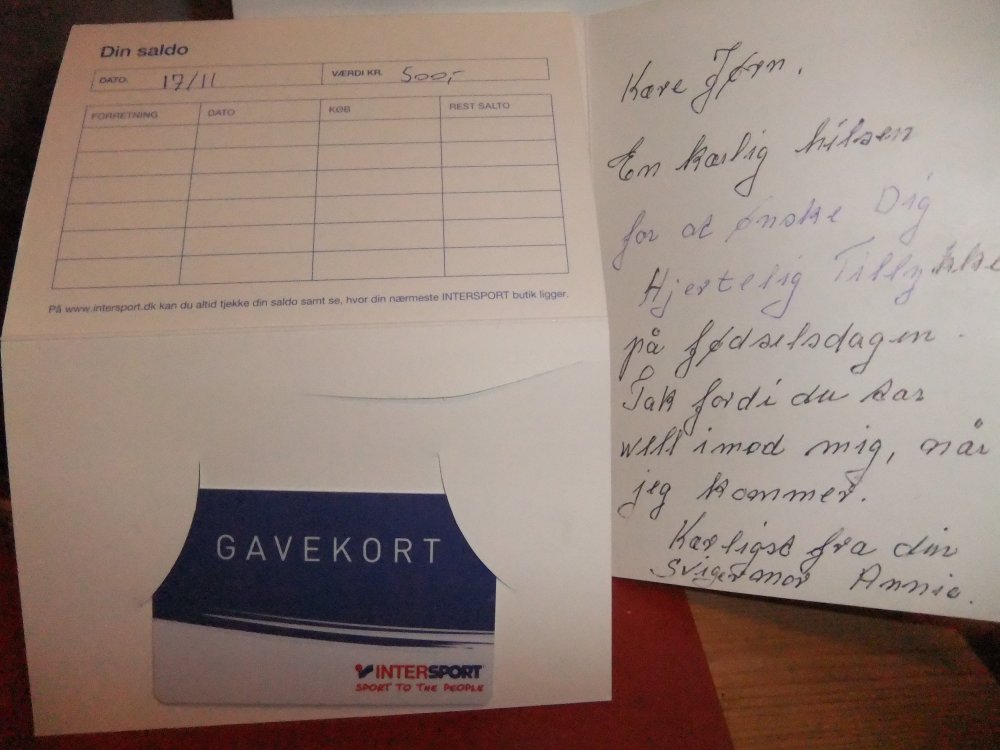 Din saldo
DATO: 17/11 VÆRDI KR. 500,-
FORRETNING DATO KØB REST SALTO
På www.intersport.dk kan du altid tjekke din saldo samt se, hvor din nærmeste INTERSPORT butik ligger.
GAVEKORT
INTERSPORT
SPORT TO THE PEOPLE
Kære Jørn.
En kærlig hilsen
for at ønske Dig
Hjertelig Tillykke
på fødselsdagen.
Tak fordi du tar
vell imod mig, når
jeg kommer.
Kærligst fra din
Svigermor Annie.